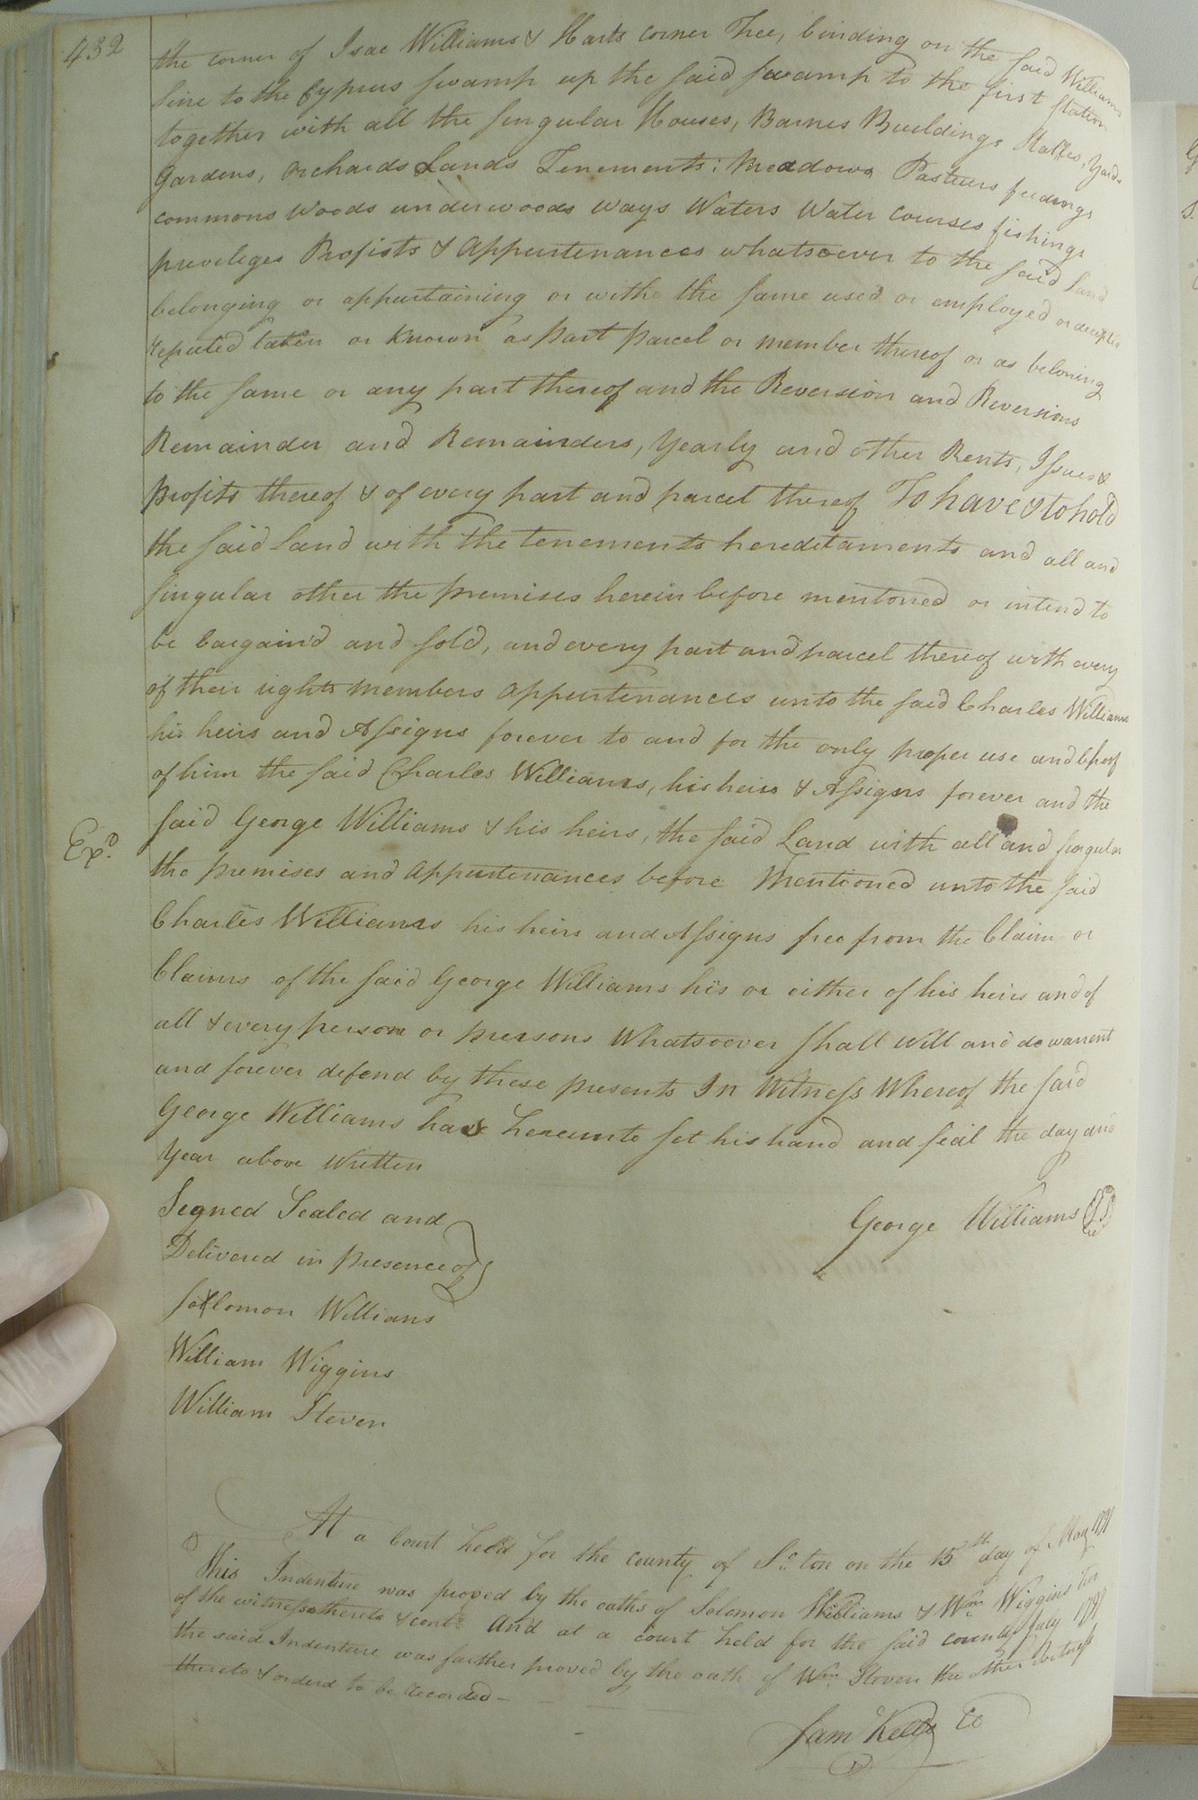 432
the corner of Isac Williams & Harts corner Tree, binding on the said Williams
line to the Cyprus swamp up the said swamp to the first station
together with all the singular Houses, Barnes Buildings Stalles, Yards
Gardens, orchards Lands Tenements: Meadows Pasturs feedings
commons Woods underwoods ways Waters Water courses fishings
preveleges Profists & Appurtenances whatsoever to the said Land
belonging or appurtaining or withe the same used or employed or accepted
reputed taken or known as part parcel or member thereof or as beloning
to the same or any part thereof and the Reversion and Reversions
Remainder and Remainders, Yearly and other Rents, Issues &
profits thereof & of every part and parcel thereof To have & to hold
the said Land with the tenements hereditaments and all and
singular other the premises herein before mentioned or intend to
be bargain'd and sold, and every part and parcel thereof with every
of their rights members appurtenances unto the said Charles Williams
his heirs and Assigns forever to and for the only proper use and behoof
of him the said Charles Williams, his heirs & Assigns forever and the
Exd.
said George Williams & his heirs, the said Land with all and singular
the premises and appurtenances before Mentioned unto the said
Charles Williams his heirs and Assigns free from the Claim or
Claims of the said George Williams his or either of his heirs and of
all & every person or persons Whatsoever shall will and do warrent
and forever defend by these presents In Witness Whereof the said
George Williams have hereunto set his hand and seal the day and
Year above Written
Segned Sealed and
George Williams
Delivered in presence of
Sollomon Williams
William Wiggins
William Steven
At a Court held for the county of So. ton on the 15th day of May 1791
This Indenture was proved by the oaths of Solomon Williams & Wm. Wiggins two
of the witnesses thereto & cont. And at a court held for the said county July 1791
the said Indenture was further proved by the oath of Wm. Steven the other witness
thereto & orderd to be recorded
Sam Kello CC